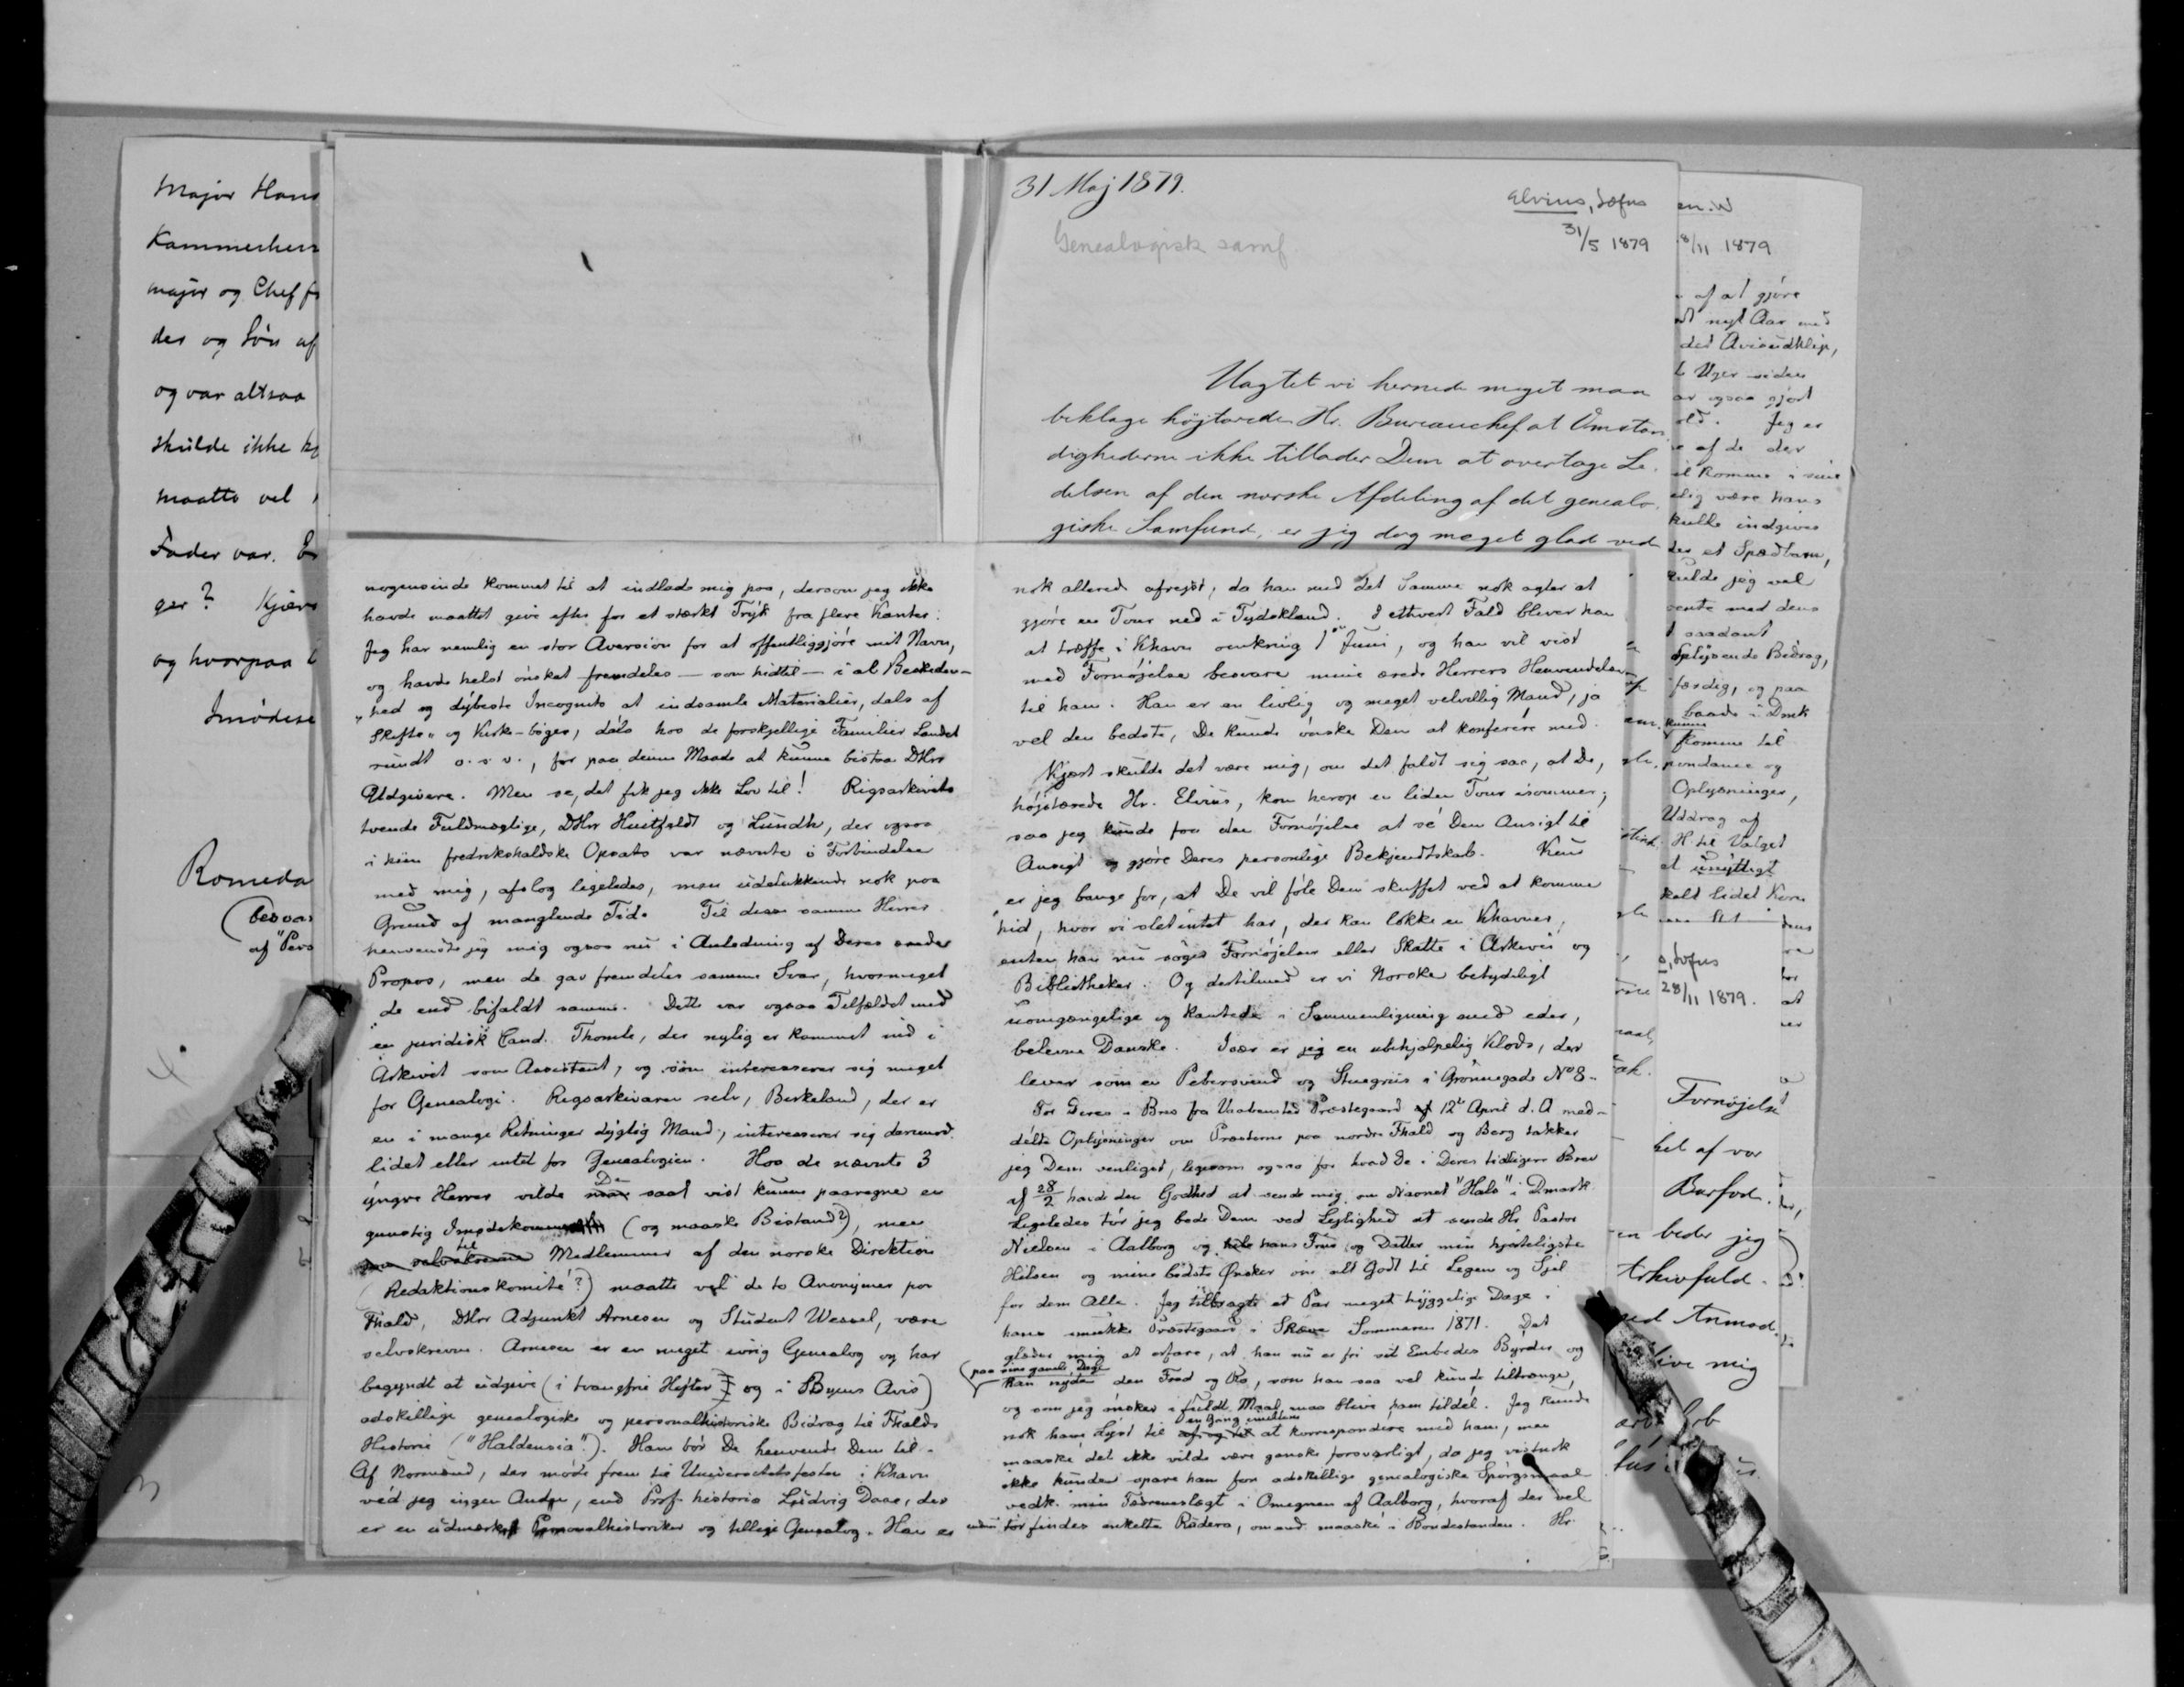 Major Hans
Kammerherr
major og Chef f
der og Søn af
og var altsaa
skulde ikke
maatte vel
Fader var.
ger? Kjære
og hvorpaa
Imødese
Romeda
(besva
af "Pers
31 Maj 1879.
Elvius, Sofus
31/5 1879
Genealogisk samf.
Uagtet vi hernede meget maa
beklage højtærede Hr. Bureauchef at Omstæn
dighederne ikke tillader Dem at overtage Le-
delsen af den norske Afdeling af det genealo-
giske Samfund, er jeg dog meget glad ved
nogensinde kommet til at indlade mig paa, dersom jeg ikke
havde maattet give efter for et stærkt Tryk fra flere Kanter:
Jeg har nemlig en stor Aversion for at offentliggjöre mit Navn,
og havde helst önsket fremdeles — som hidtil — i al Beskeden-
hed og dybeste Incognito at indsamle Materialier, dels af
Skifte- og Kirke-böger, dels hos de forskjellige Familier Landet
rundt o.s.v., for paa denne Maade at kunne bistaa DHrr
Udgivere. Men se, det fik jeg ikke Lov til! Rigsarkivets
tvende Fuldmægtige, DHrr Huitfeldt og Lundh, der ogsaa
i hiin fredrikshaldske Opsats var nævnte i Forbindelse
med mig, afslog ligeledes, men udelukkende nok paa
Grund af manglende Tid. Til disse samme Herrer
henvendte jeg mig ogsaa nu i Anledning af Deres ærede
Propos, men de gav fremdeles samme Svar, hvormeget
de end bifaldt samme. Dette var ogsaa Tilfældet med
en juridisk Cand. Thomle, der nylig er kommet ind i
Arkivet som Assistent, og som interesserer sig meget
for Genealogi. Rigsarkivaren selv, Birkeland, der er
en i mange Retninger dygtig Mand, interesserer sig derimod
lidet eller intet for Genealogien. Hos de nævnte 3
yngre Herrer vilde De saal vist kunne paaregne en
gunstig Imødekommen (og maaske Bistand?), men
til Medlemmer af den norske Direktion
(Redaktionskomité?) maatte vel de to Anonymer paa
Fhald, DHrr Adjunkt Arnesen og Student Wessel, være
selvskrevne. Arnesen er en meget ivrig Genealog og har
begyndt at udgive (i tvangfrie Hefter og i Byens Avis)
adskillige genealogiske og personalhistoriske Bidrag til Fhalds
Historie ("Haldensia"). Ham bör De henvende Dem til.
Af Normænd, der møde frem til Universitetsfesten i Khavn
véd jeg ingen Anden, end Prof. historia Ludvig Daae, der
er en udmærket Personalhistoriker og tillige Genealog. Han er
nok allerede afrejst, da han med det Samme nok agter at
gjöre en Tour ned i Tydskland. I ethvert Fald bliver han
at træffe i Khavn omkring 1ste Juni, og han vil vist
med Fornöjelse besvare mine ærede Herrers Henvendelser
til ham. Han er en livlig og meget velvillig Mand, ja
vel den bedste, De kunde önske Dem at konferére med.
Kjært skulde det være mig, om det faldt sig saa, at De,
höjstærede Hr. Elvius, kom herop en liden Tour isommer,
saa jeg kunde faa den Fornöjelse at sé Dem Ansigt til
Ansigt og gjöre Deres personlige Bekjendtskab. Kun
er jeg bange for, at De vil föle Dem skuffet ved at komme
hid, hvor vi slet intet har, der kan lokke en Khavner,
enten han nu söger Fornöjelser eller Skatte i Arkiver og
Bibliotheker. Og dertilmed er vi Norske betydeligt
uomgængelige og kantede i Sammenligning med eder,
belevne Danske. Især er jeg en ubehjælpelig Klods, der
lever som en Pebersvend og Stuegris i Grönnegade No 8.
For Deres i Brev fra Præstegaard 12te April d.A. med-
délte Oplysninger om Præsterne paa nordre Fhald og Berg takker
jeg Dem venligst, ligesom ogsaa for hvad De i Deres tidligere Brev
af 28/2 havde den Godhed at sende mig om Navnet "Hals" i Dmark.
Ligeledes tör jeg bede Dem ved Lejlighed at sende Hr. Pastor
Nielsen i Aalborg og hans Frue og Datter min hjerteligste
Hilsen og mine bedste Önsker om alt Godt til Legem og Sjel
for dem Alle. Jeg tilbragte et Par meget hyggelige Dage i
hans smukke Præstegaard i Skæve Sommeren 1871. Det
glæder mig at erfare, at han nu er fri sit Embedes Byrder og
(paa sine gamle Dage
kan nyde den Fred og Ro, som han saa vel kunde tiltrænge,
og som jeg önsker i fuldt Maal maa blive ham tildél. Jeg kunde
nok have Lyst til en Gang imellem at korrespondere med ham, men
maaske det ikke vilde være ganske forsvarligt, da jeg vistnok
ikke kunde spare ham for adskillige genealogiske Spörgsmaal
vedk. min Fædreneslægt i Omegnen af Aalborg, hvoraf der vel
endnu tör findes enkelte Rödder, omend maaske i Bondestanden. Hr.
en. W
8/11 1879
af at gjöre
nyt Aar med
det Avisudklip,
Uger siden
ogsaa gjort
Jeg er
af de der
komme i
være hans
indgives
et Spædbarn,
skulde jeg vel
vente med dens
saadant
oplysende Bidrag,
færdig, og paa
baade i Dmk
kunne
komme til
pondance og
Oplysninger,
Uddrag af
H. til Valget
et unyttigt
lidet Korn
Sofus
28/11 1879.
Fornøjelse
bet af vor
Barfod.
en beder jeg
Arkivfuld-
ved Anmod-
blive mig